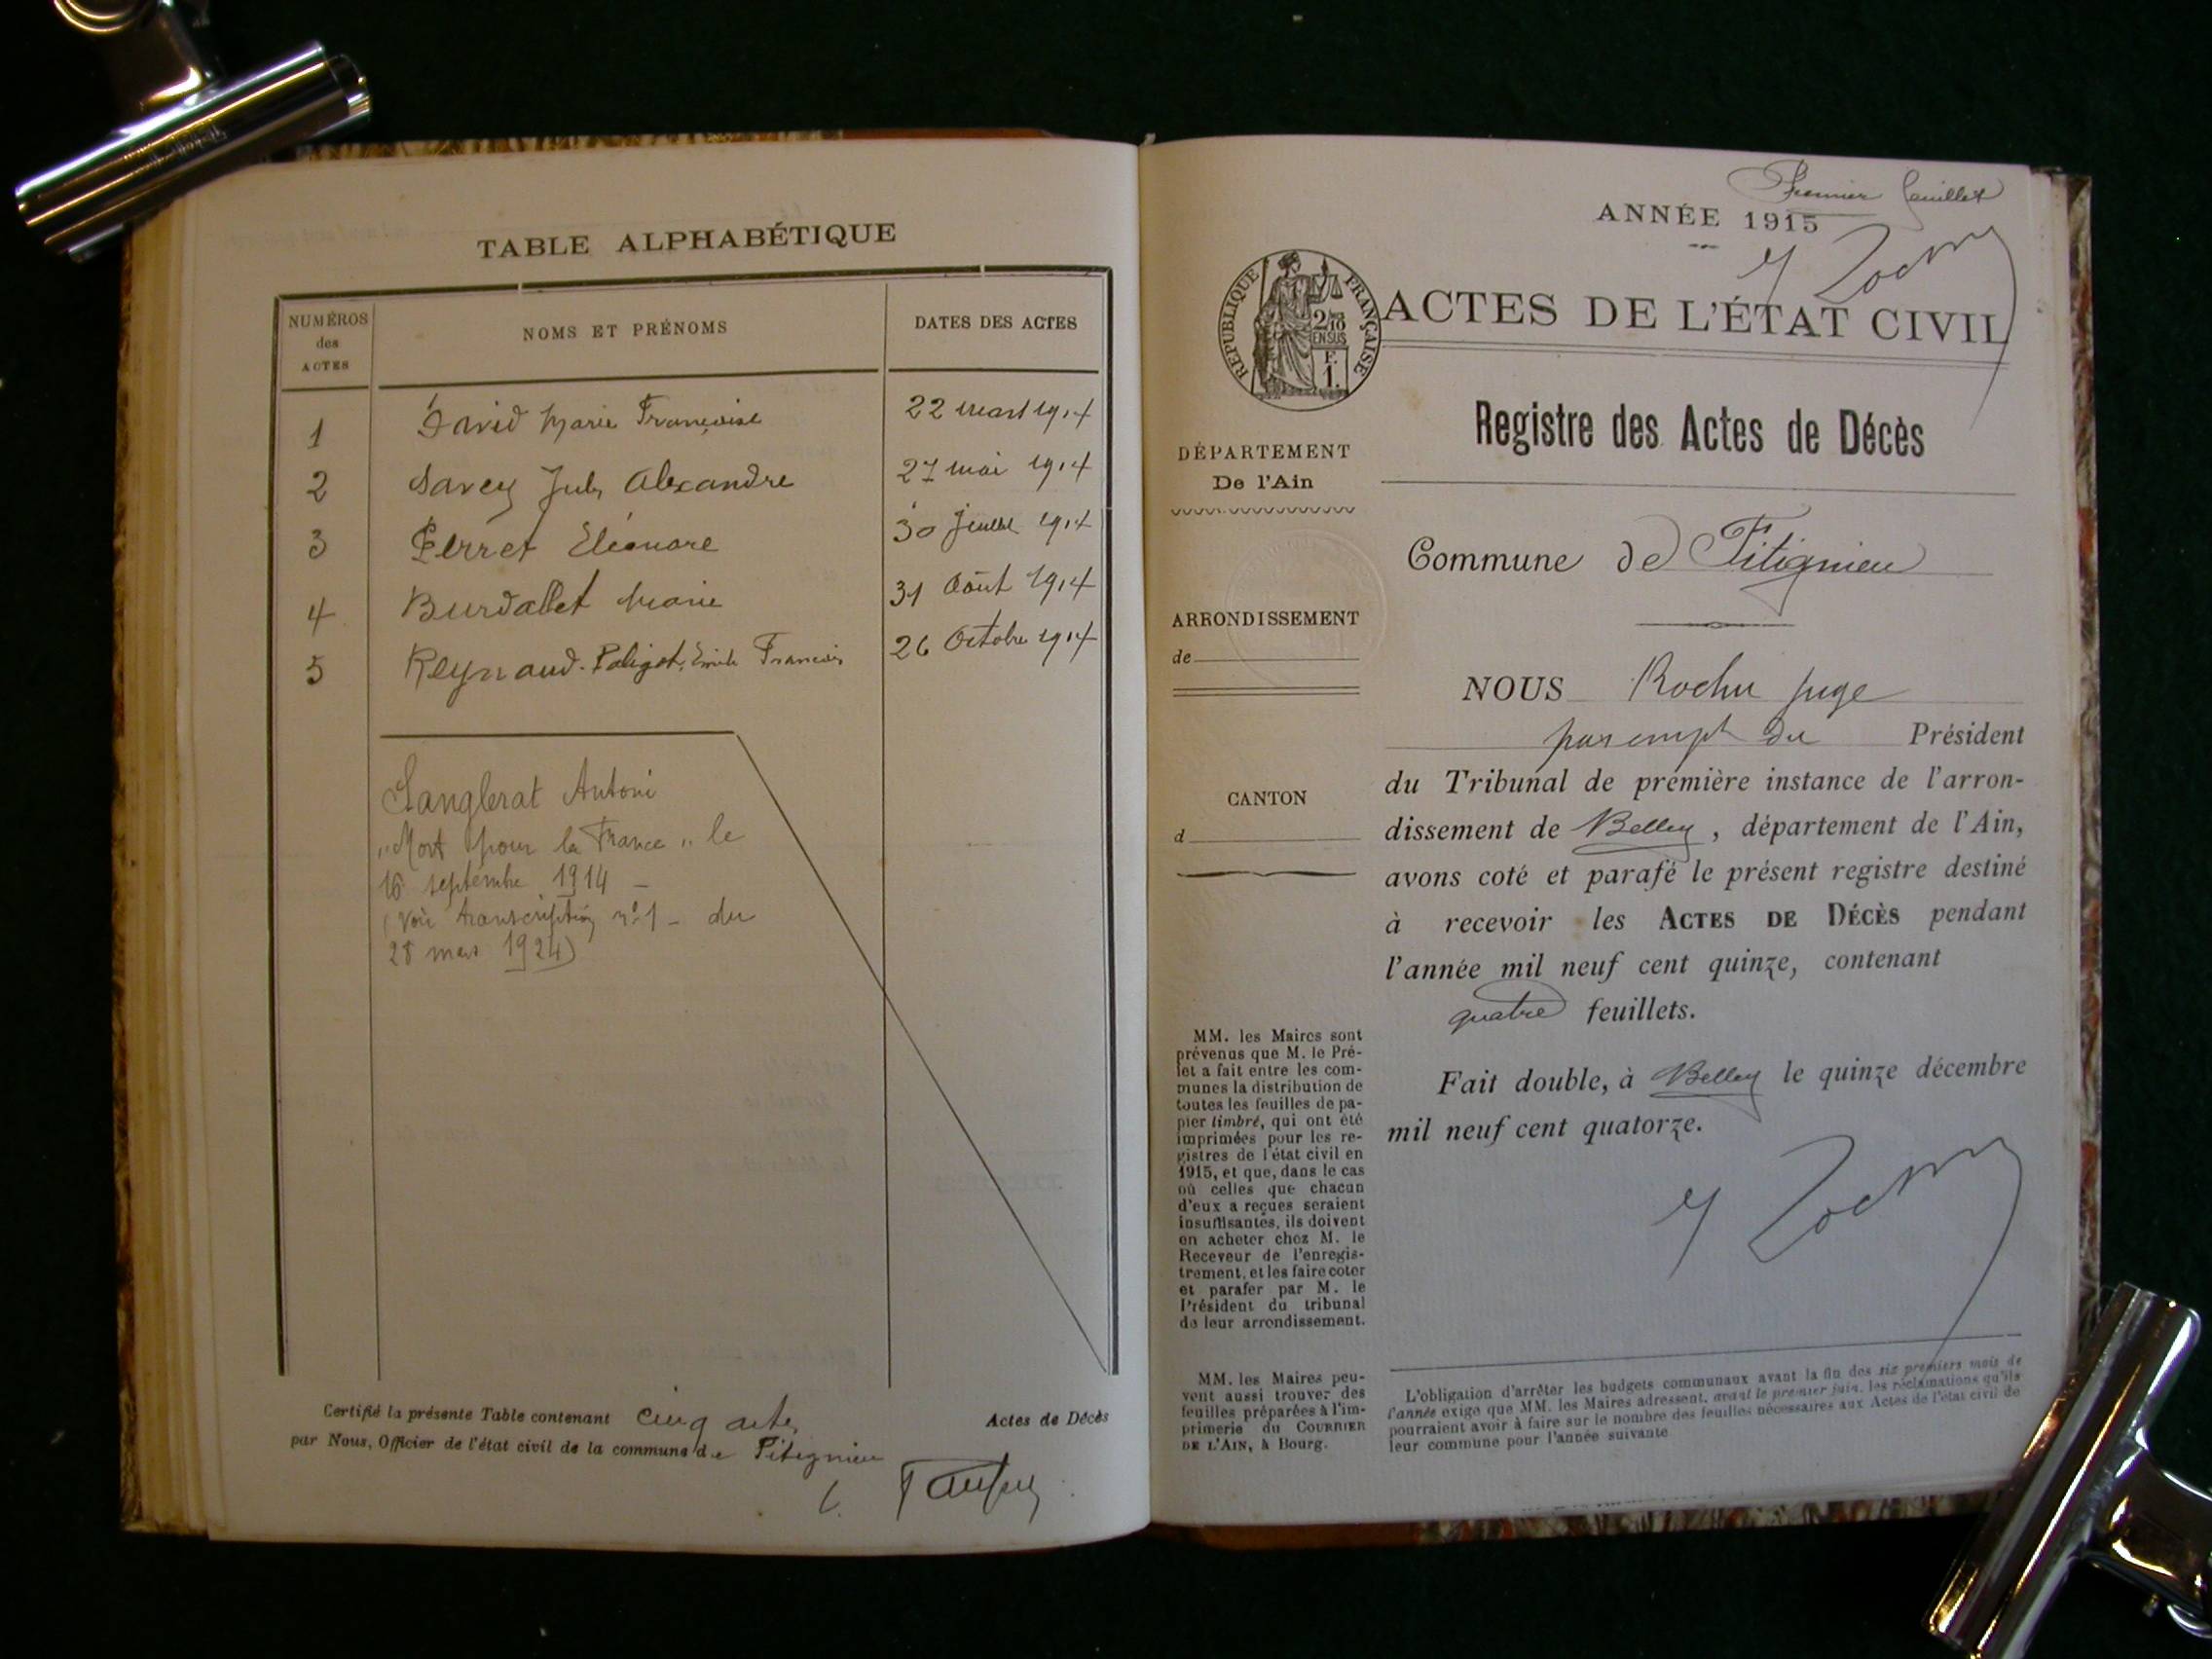 TABLE ALPHABÉTIQUE
NUMÉROS des ACTES
NOMS ET PRÉNOMS
DATES DES ACTES
1 David Marie Françoise 22 mars 1914
2 Savey Jules Alexandre 27 mai 1914
3 Perret Eléonore 30 Juillet 1914
4 Burdallet Marie 31 Août 1914
5 Reynaud-Paligot, Emile François 26 Octobre 1914
Sanglerat Antoni
"Mort pour la France" le
16 septembre 1914 -
(Voir transcription n° 1 - du
28 mars 1924)
Certifié la présente Table contenant cinq actes Actes de Décès
par Nous, Officier de l'état civil de la commune de Fitignieu
Premier feuillet
ANNÉE 1915
RÉPUBLIQUE FRANÇAISE
2/10
EN SUS
F.
1.
ACTES DE L'ÉTAT CIVIL
Registre des Actes de Décès
DÉPARTEMENT
De l'Ain
ARRONDISSEMENT
de
CANTON
d
MM. les Maires sont
prévenus que M. le Pré-
fet a fait entre les com-
munes la distribution de
toutes les feuilles de pa-
pier timbré, qui ont été
imprimées pour les re-
gistres de l'état civil en
1915, et que, dans le cas
où celles que chacun
d'eux a reçues seraient
insuffisantes, ils doivent
en acheter chez M. le
Receveur de l'enregis-
trement, et les faire coter
et parafer par M. le
Président du tribunal
de leur arrondissement.
MM. les Maires peu-
vent aussi trouver des
feuilles préparées à l'im-
primerie du COURRIER
DE L'AIN, à Bourg.
Commune de Fitignieu
NOUS Rochu juge
par empt du Président
du Tribunal de première instance de l'arron-
dissement de Belley, département de l'Ain,
avons coté et parafé le présent registre destiné
à recevoir les ACTES DE DÉCÈS pendant
l'année mil neuf cent quinze, contenant
quatre feuillets.
Fait double, à Belley le quinze décembre
mil neuf cent quatorze.
L'obligation d'arrêter les budgets communaux avant la fin des six premiers mois de
l'année exige que MM. les Maires adressent, avant le premier juin, les réclamations qu'ils
pourraient avoir à faire sur le nombre des feuilles nécessaires aux Actes de l'état civil de
leur commune pour l'année suivante